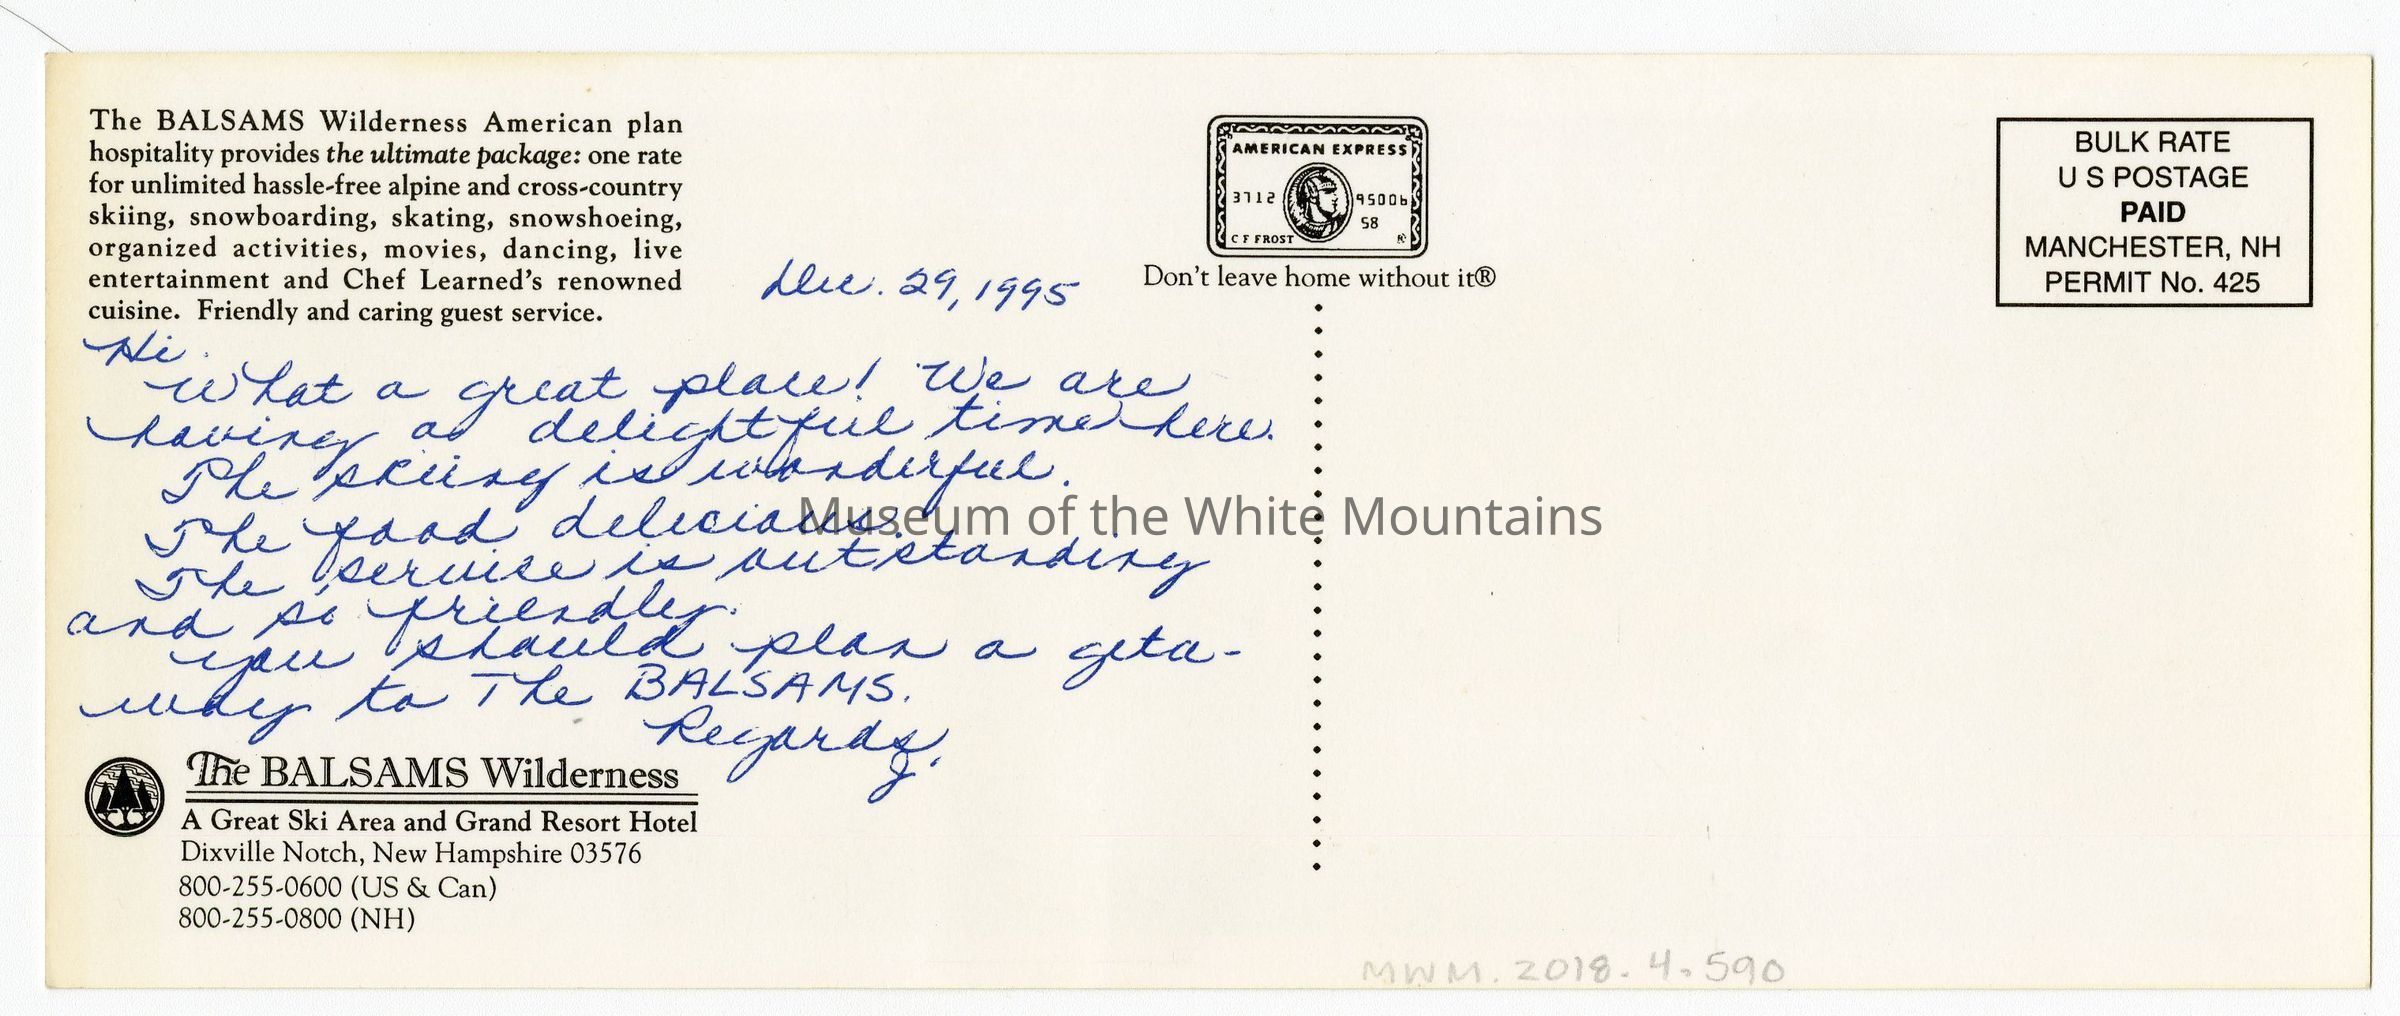 The BALSAMS Wilderness American plan
hospitality provides the ultimate package: one rate
for unlimited hassle-free alpine and cross-country
skiing, snowboarding, skating, snowshoeing,
organized activities, movies, dancing, live
entertainment and Chef Learned's renowned
cuisine. Friendly and caring guest service.
Dec. 29, 1995
Hi.
What a great place! We are
having a delightful time here.
The skiing is wonderful.
The food delicious.
The service is outstanding
and so friendly.
You should plan a geta-
way to The BALSAMS.
Regards,
J.
The BALSAMS Wilderness
A Great Ski Area and Grand Resort Hotel
Dixville Notch, New Hampshire 03576
800-255-0600 (US & Can)
800-255-0800 (NH)
AMERICAN EXPRESS
3712 95006
58
C F FROST
Don't leave home without it®
BULK RATE
U S POSTAGE
PAID
MANCHESTER, NH
PERMIT No. 425
Museum of the White Mountains
MWM. 2018. 4. 590